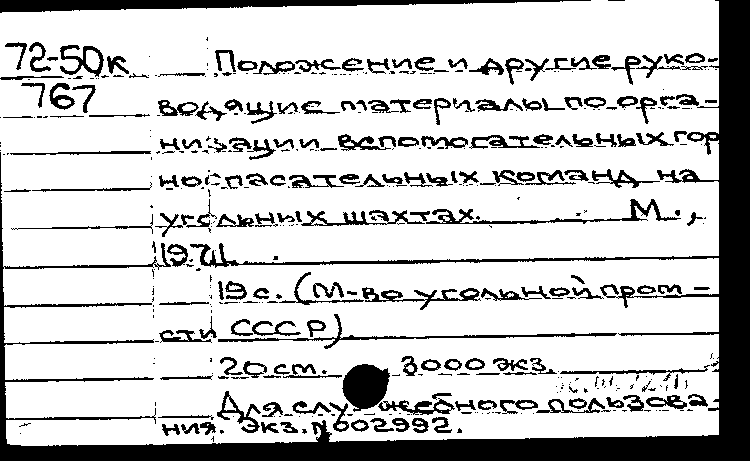 72-50к
767
Положение и другие руко-
водящие материалы по орга-
низации вспомогательных гор
носпасательных команд на
угольных шахтах. М.,
1971.
19 с. (М-во угольной пром-
сти СССР).
20 см. 3000 экз.
Для служебного пользова-
ния. Экз. №002992.